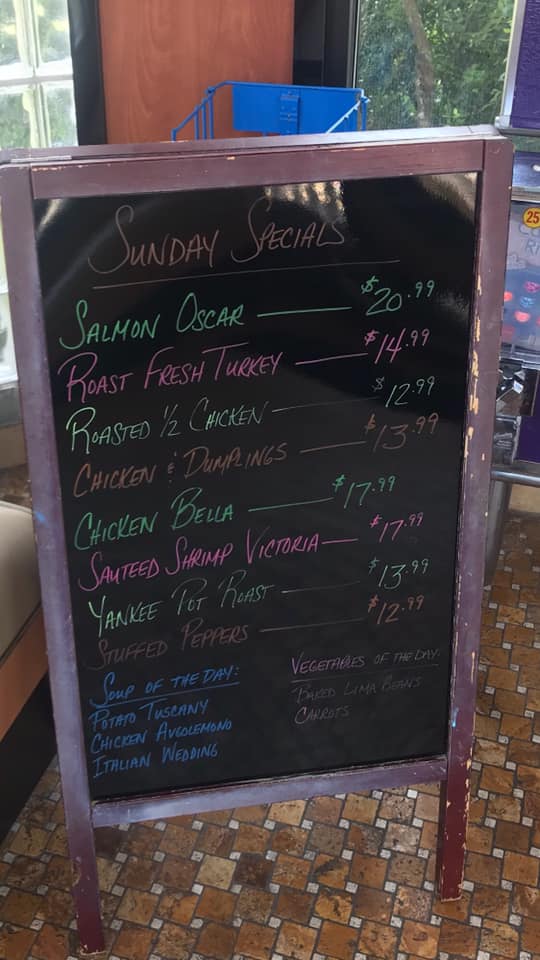 SUNDAY SPECIALS
SALMON OSCAR — $20.99
ROAST FRESH TURKEY — $14.99
ROASTED 1/2 CHICKEN — $12.99
CHICKEN & DUMPLINGS — $13.99
CHICKEN BELLA — $17.99
SAUTEED SHRIMP VICTORIA — $17.99
YANKEE POT ROAST — $13.99
STUFFED PEPPERS — $12.99
SOUP OF THE DAY:
POTATO TUSCANY
CHICKEN AVGOLEMONO
ITALIAN WEDDING
VEGETABLES OF THE DAY:
BAKED LIMA BEANS
CARROTS
25